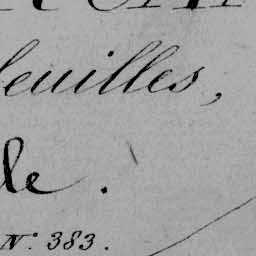 feuilles,
le.
N.° 383.